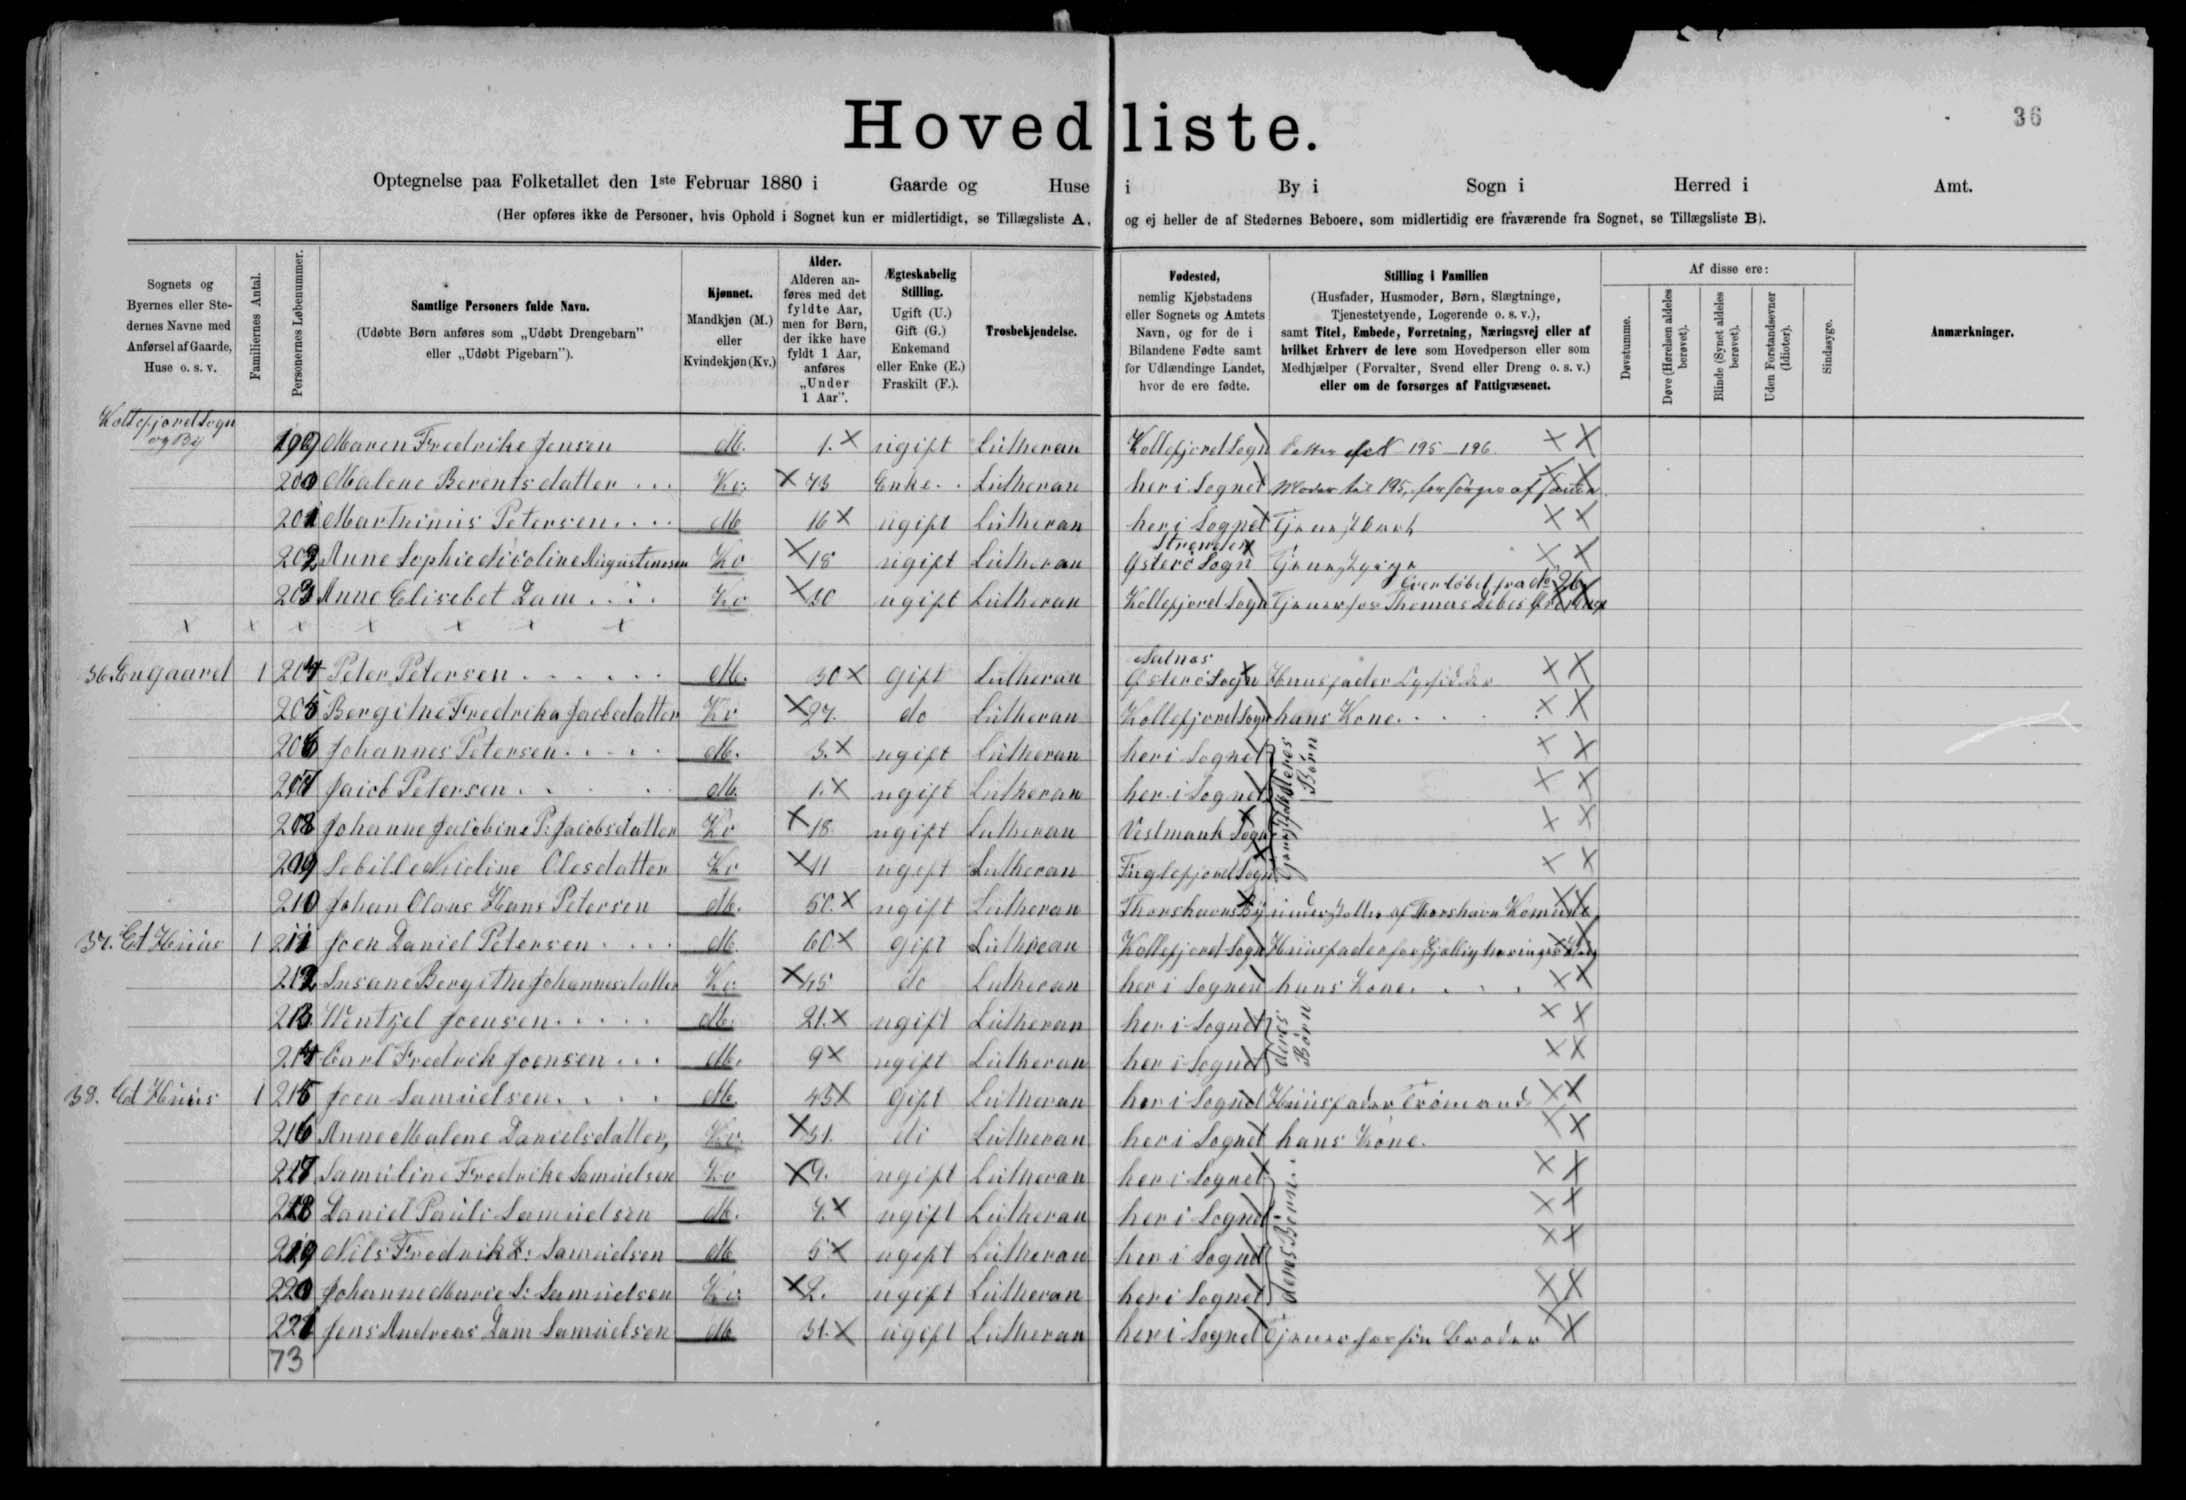 36
Hovedliste.
Optegnelse paa Folketallet den 1ste Februar 1880 i Gaarde og Huse i By i Sogn i Herred i Amt.
(Her opføres ikke de Personer, hvis Ophold i Sognet kun er midlertidigt, se Tillægsliste A, og ej heller de af Stedernes Beboere, som midlertidig ere fraværende fra Sognet, se Tillægsliste B).
Sognets og
Byernes eller Ste-
dernes Navne med
Anførsel af Gaarde,
Huse o. s. v.
Familiernes Antal.
Personernes Løbenummer.
Samtlige Personers fulde Navn.
(Udøbte Børn anføres som „Udøbt Drengebarn"
eller „Udøbt Pigebarn").
Kjønnet.
Mandkjøn (M.)
eller
Kvindekjøn (Kv.)
Alder.
Alderen an-
føres med det
fyldte Aar,
men for Børn,
der ikke have
fyldt 1 Aar,
anføres
„Under
1 Aar".
Ægteskabelig
Stilling.
Ugift (U.)
Gift (G.)
Enkemand
eller Enke (E.)
Fraskilt (F.).
Trosbekjendelse.
Fødested,
nemlig Kjøbstadens
eller Sognets og Amtets
Navn, og for de i
Bilandene Fødte samt
for Udlændinge Landet,
hvor de ere fødte.
Stilling i Familien
(Husfader, Husmoder, Børn, Slægtninge,
Tjenestetyende, Logerende o. s. v.),
samt Titel, Embede, Forretning, Næringsvej eller af
hvilket Erhverv de leve som Hovedperson eller som
Medhjælper (Forvalter, Svend eller Dreng o. s. v.)
eller om de forsørges af Fattigvæsenet.
Af disse ere:
Døvstumme.
Døve (Hørelsen aldeles
berøvet).
Blinde (Synet aldeles
berøvet).
Uden Forstandsevner
(Idioter).
Sindssyge.
Anmærkninger.
Kollefjord Sogn
og By
199 Maren Fredrike Jensen M. 1. ugift Lutheran Kollefjord Sogn 195-196
200 Malene Berentsdatter Kv. 73 Enke Lutheran her i Sognet Moder til 195, forsørges af
201 Marthinus Petersen M. 16 ugift Lutheran her i Sognet
202 Anne Sophie Nicoline Augustinussen Kv 18 ugift Lutheran Østerø Sogn
203 Anne Elisebet Dam Kv 30 ugift Lutheran Kollefjord Sogn Tjener for Thomas Debes
36. En gaard 1 204 Peter Petersen M. 30 gift Lutheran Østerø Sogn Huusfader
205 Bergithe Fredrika Jacobsdatter Kv 27. do Lutheran Kollefjord Sogn hans Kone.
206 Johannes Petersen M. 3. ugift Lutheran her i Sognet deres Børn
207 Jaicob Petersen M. 1. ugift Lutheran her i Sognet
208 Johanne Jacobine P. Jacobsdatter Kv 18 ugift Lutheran Vestmanh Sogn
209 Sebille Nicoline Olesdatter Kv 11 ugift Lutheran Fuglefjord Sogn
210 Johan Claus Hans Petersen M. 50. ugift Lutheran Thorshavns By af Thorshavn Komune
37. Et Huus 1 211 Joen Daniel Petersen M. 60 Gift Lutheran Kollefjord Sogn Huusfader
212 Susane Bergithe Johannesdatter Kv 45 do Lutheran her i Sognen hans Kone.
213 Wentzel Joensen M. 21. ugift Lutheran her i Sognet deres Børn
214 Carl Fredrik Joensen M. 9 ugift Lutheran her i Sognet
38. Et Huus 1 215 Joen Samuelsen M. 45 Gift Lutheran her i Sognet Huusfader
216 Anne Malene Danielsdatter, Kv. 31. do Lutheran her i Sognet hans Kone.
217 Samuline Fredrike Samuelsen Kv 9. ugift Lutheran her i Sognet deres Børn
218 Daniel Pauli Samuelsen M. 7. ugift Lutheran her i Sognet
219 Nils Fredrik D: Samuelsen M 5 ugift Lutheran her i Sognet
220 Johanne Marie S: Samuelsen Kv: 2. ugift Lutheran her i Sognet
221 Jens Andreas Dam Samuelsen M 31. ugift Lutheran her i Sognet Tjener for sin Broder
73